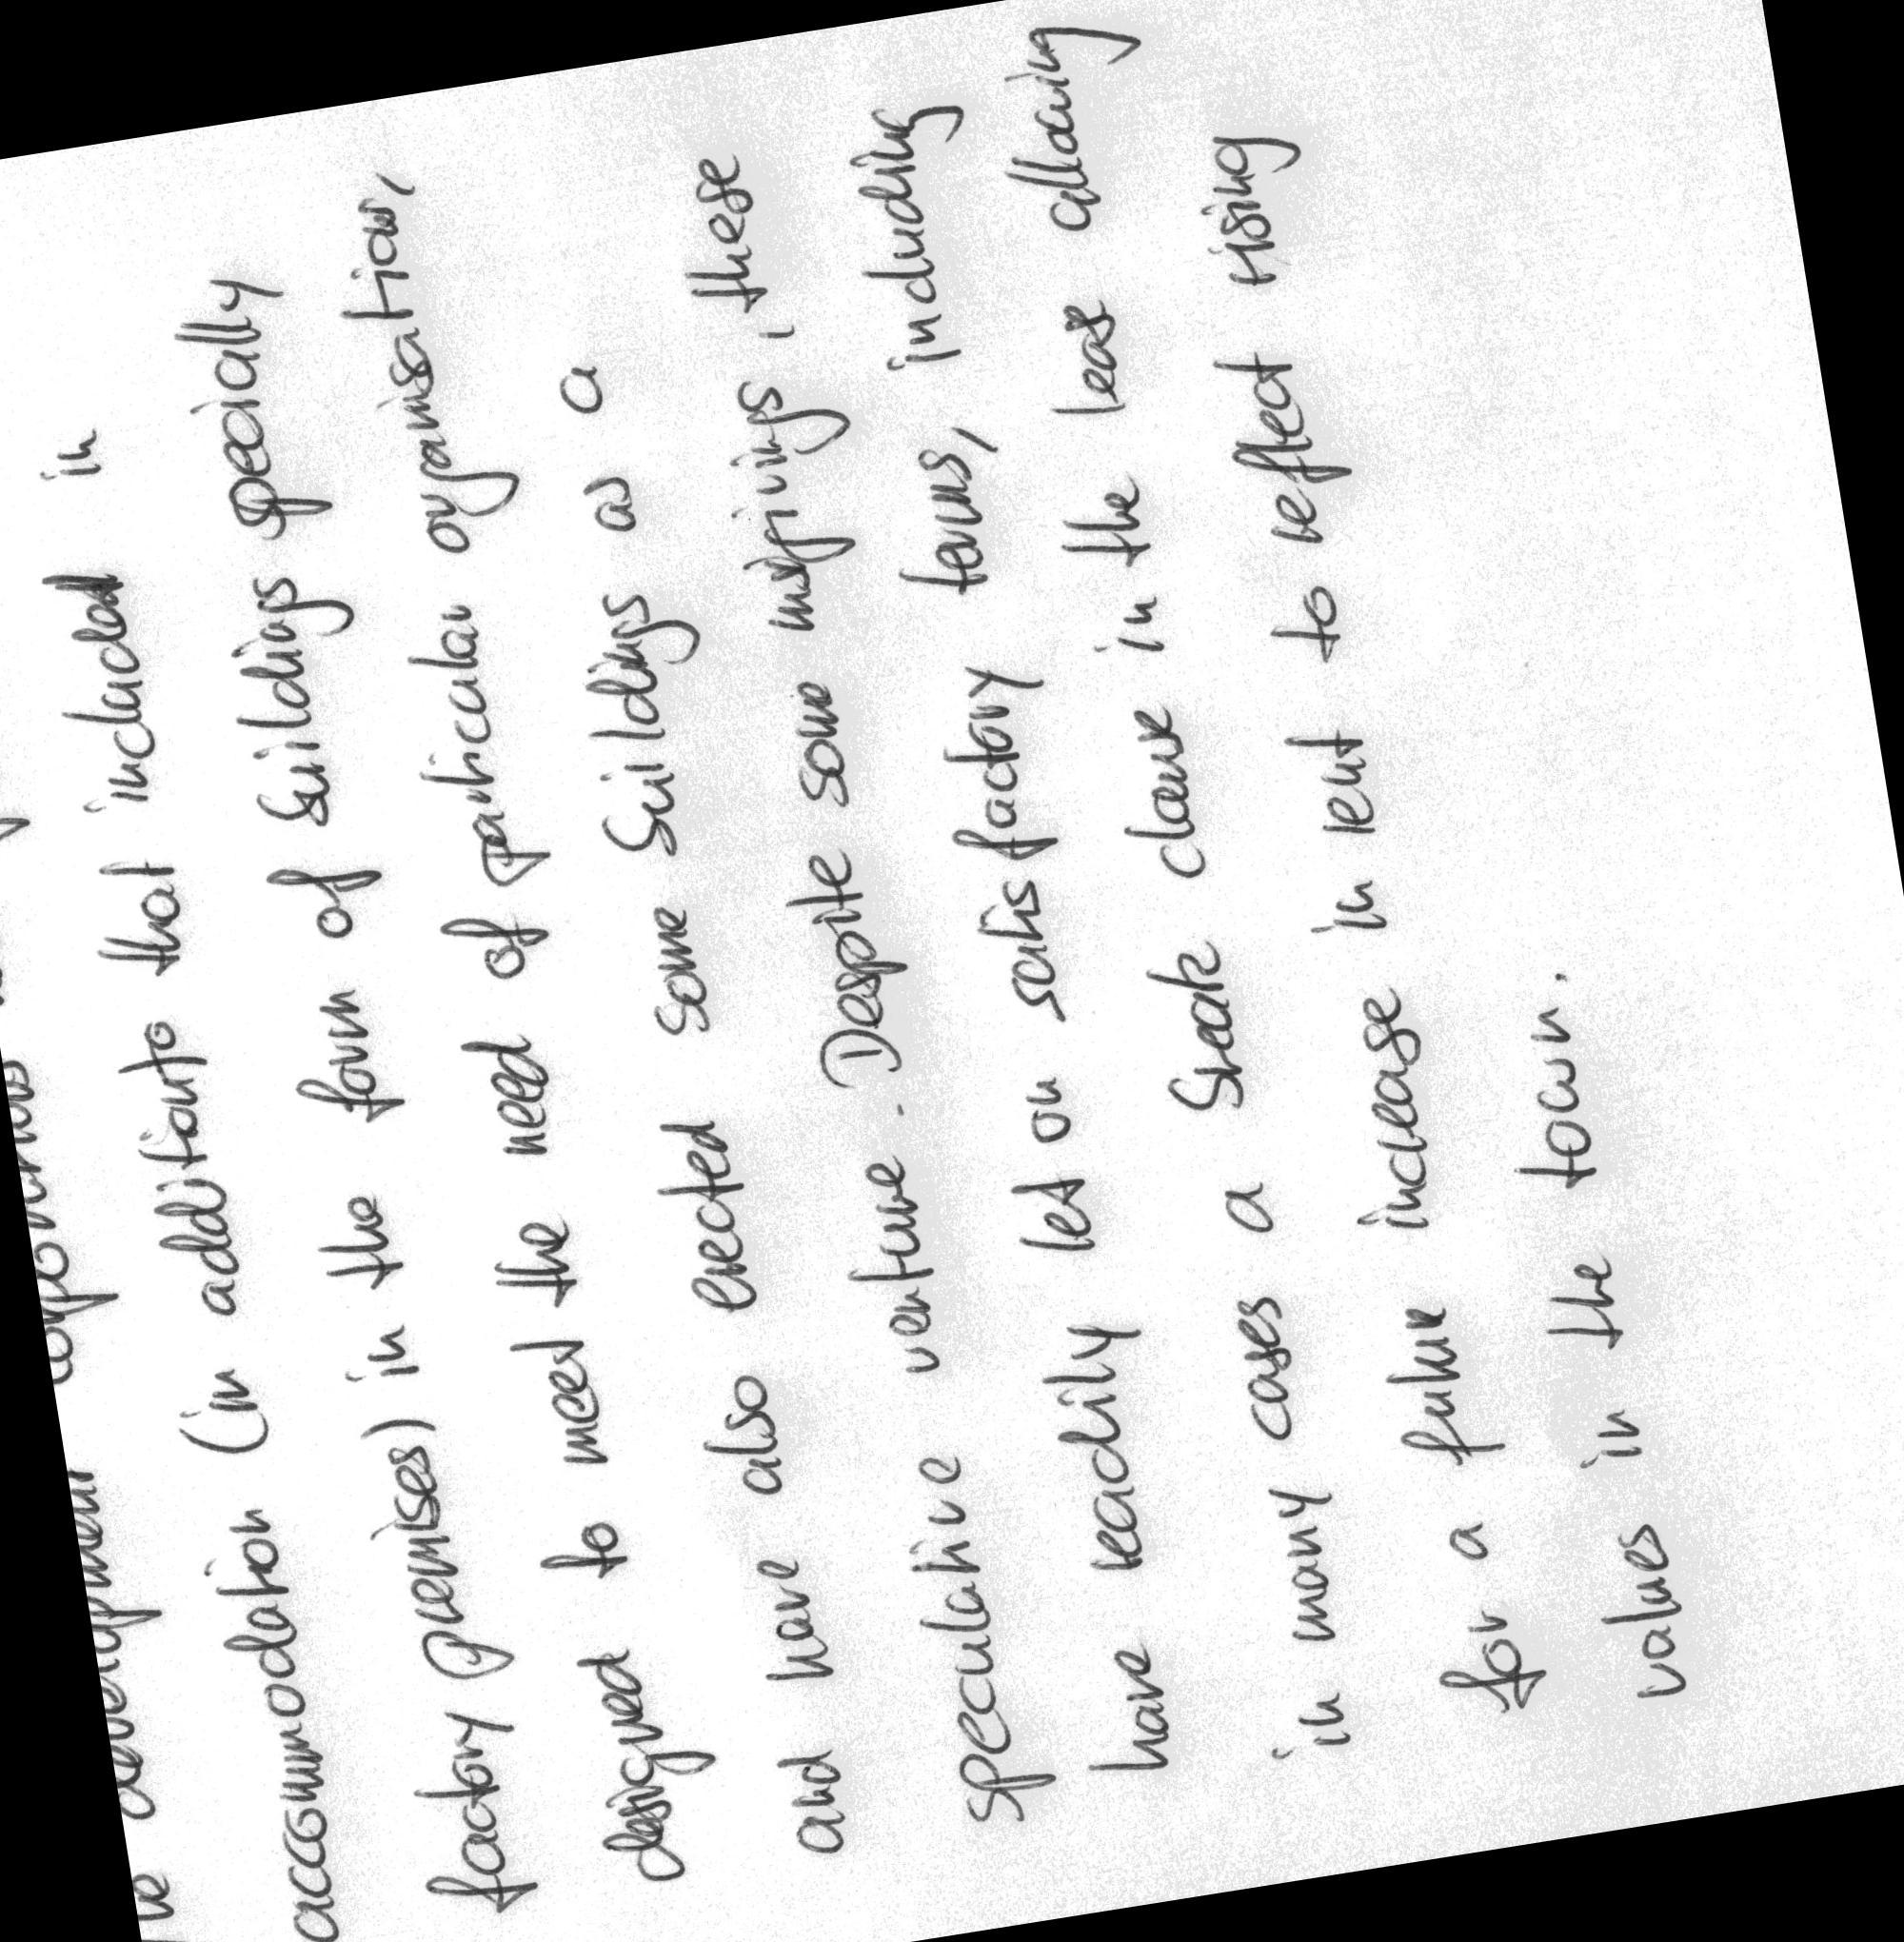 development corporations
accommodation (in additionto that included in
factory premises) in the form of buildings specially
designed to meet the need of particular organisations,
and have also erected some buildings as a
speculative venture. Despite some misgivings, these
have readily let on satisfactory terms, including
in many cases a break clause in the leas allowing
for a future increase in rent to reflect rising
values in the town.